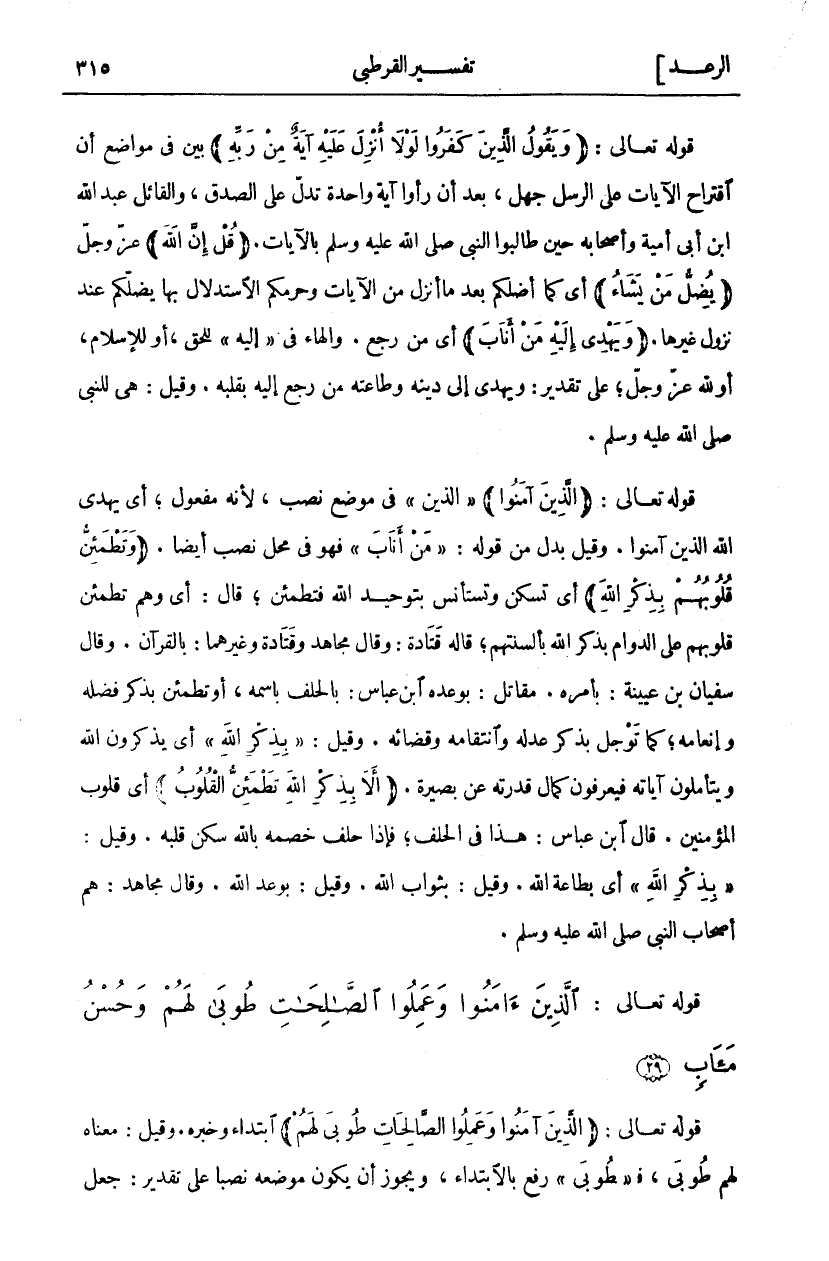 الرعـــد] تفســـير القرطبى ٣١٥
قوله تعـالى : ﴿ وَيَقُولُ الَّذِينَ كَفَرُوا لَوْلَا أُنْزِلَ عَلَيْهِ آيَةٌ مِنْ رَبِّهِ ﴾ بين فى مواضع أن
ٱقتراح الآيات على الرسل جهل ، بعد أن رأوا آية واحدة تدلّ على الصدق ، والقائل عبد الله
ابن أبى أمية وأصحابه حين طالبوا النبى صلى الله عليه وسلم بالآيات. ﴿ قُلْ إِنَّ اللَّهَ ﴾ عزّ وجلّ
﴿ يُضِلُّ مَنْ يَشَاءُ ﴾ أى كما أضلكم بعد ما أنزل من الآيات وحرمكم الاستدلال بها يضلّكم عند
نزول غيرها. ﴿ وَيَهْدِى إِلَيْهِ مَنْ أَنَابَ ﴾ أى من رجع . والهاء فى « إليه » للحق ، أو للإسلام،
أو لله عزّ وجلّ؛ على تقدير: ويهدى إلى دينه وطاعته من رجع إليه بقلبه . وقيل : هى للنبى
صلى الله عليه وسلم .
قوله تعـالى : ﴿ الَّذِينَ آمَنُوا ﴾ « الذين » فى موضع نصب ، لأنه مفعول ؛ أى يهدى
الله الذين آمنوا . وقيل بدل من قوله : « مَنْ أَنَابَ » فهو فى محل نصب أيضا . ﴿ وَتَطْمَئِنُّ
قُلُوبُهُـمْ بِذِكْرِ اللَّهِ ﴾ أى تسكن وتستأنس بتوحيـد الله فتطمئن ؛ قال : أى وهم تطمئن
قلوبهم على الدوام بذكر الله بألسنتهم؛ قاله قَتَادة : وقال مجاهد وقَتَادة وغيرهما : بالقرآن . وقال
سفيان بن عيينة : بأمره . مقاتل : بوعده ٱبن عباس : بالحلف باسمه ، أو تطمئن بذكر فضله
وإنعامه؛ كما تَوْجل بذكر عدله وٱنتقامه وقضائه . وقيل : « بِذِكْرِ اللَّهِ » أى يذكرون الله
ويتأملون آياته فيعرفون كمال قدرته عن بصيرة . ﴿ أَلَا بِذِكْرِ اللَّهِ تَطْمَئِنُّ الْقُلُوبُ ﴾ أى قلوب
المؤمنين . قال ٱبن عباس : هـذا فى الحلف؛ فإذا حلف خصمه بالله سكن قلبه . وقيل :
« بِذِكْرِ اللَّهِ » أى بطاعة الله . وقيل : بثواب الله . وقيل : بوعد الله . وقال مجاهد : هم
أصحاب النبى صلى الله عليه وسلم .
قوله تعـالى : ٱلَّذِينَ ءَامَنُوا وَعَمِلُوا ٱلصَّـٰلِحَـٰتِ طُوبَىٰ لَهُمْ وَحُسْنُ
مَـَٔابٍ ٢٩
قوله تعـالى : ﴿ الَّذِينَ آمَنُوا وَعَمِلُوا الصَّالِحَاتِ طُوبَى لَهُمْ ﴾ ٱبتداء وخبره. وقيل : معناه
لهم طُوبَى ، فـ « طُوبَى » رفع بالابتداء ، ويجوز أن يكون موضعه نصبا على تقدير : جعل